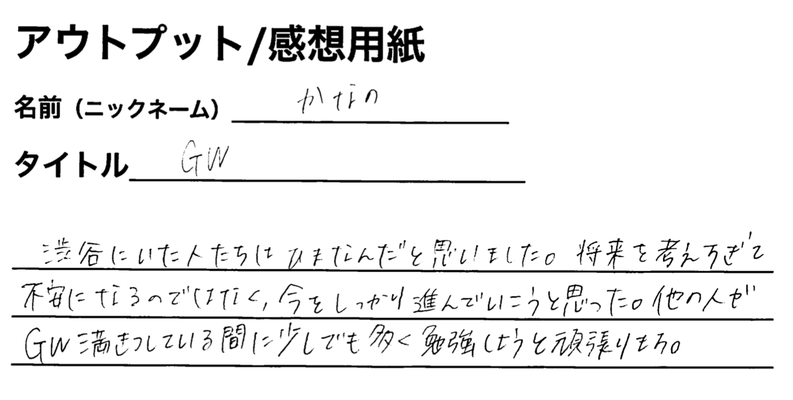 アウトプット/感想用紙
名前（ニックネーム） かなの
タイトル GW
渋谷にいた人たちは ひまなんだと思いました。将来を考えすぎて
不安になるのではなく、今をしっかり進んでいこうと思った。他の人が
GW満きつしている間に少しでも多く勉強しようと頑張りもろ。